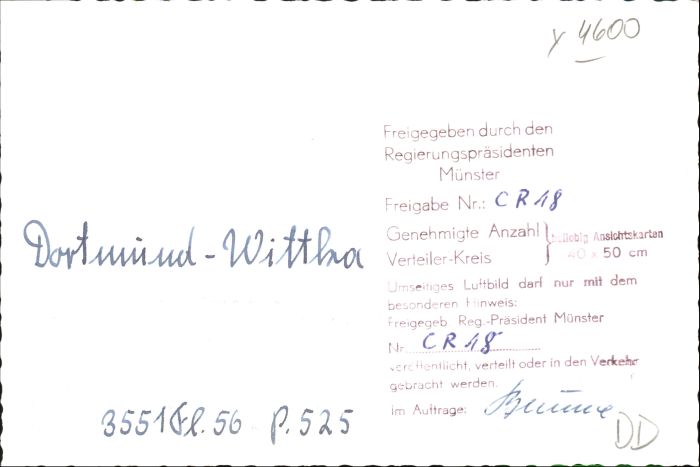 y 4600
Freigegeben durch den
Regierungspräsidenten
Münster
Freigabe Nr.: CR 18
Genehmigte Anzahl } beliebig Ansichtskarten
Verteiler-Kreis 40 x 50 cm
Umseitiges Luftbild darf nur mit dem
besonderen Hinweis:
Freigegeb Reg.-Präsident Münster
Nr. CR 18
veröffentlicht, verteilt oder in den Verkehr
gebracht werden.
im Auftrage:
Dortmund-Wittka
3551 Fl. 56 P. 525
DD